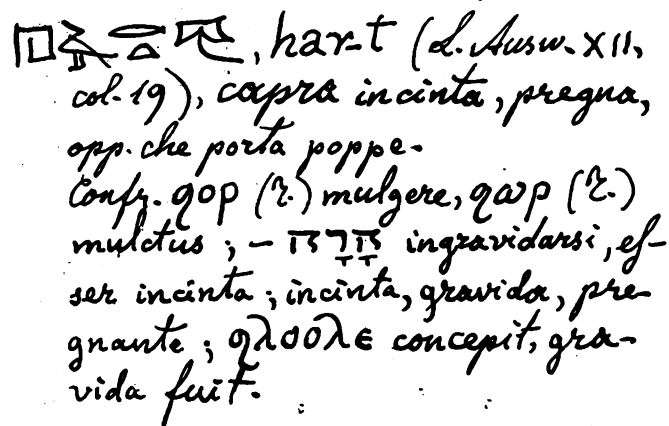 𓉔𓄿𓂋𓏏𓄛, har-t (L. Ausw. XII,
col. 19), capra incinta, pregna,
opp. che porta poppe.
Confr. ϩορ (Z.) mulgere, ϩωρ (Z.)
mulctus ; – הָרָה ingravidarsi, es-
ser incinta ; incinta, gravida, pre-
gnante ; ϩλοολε concepit, gra-
vida fuit.